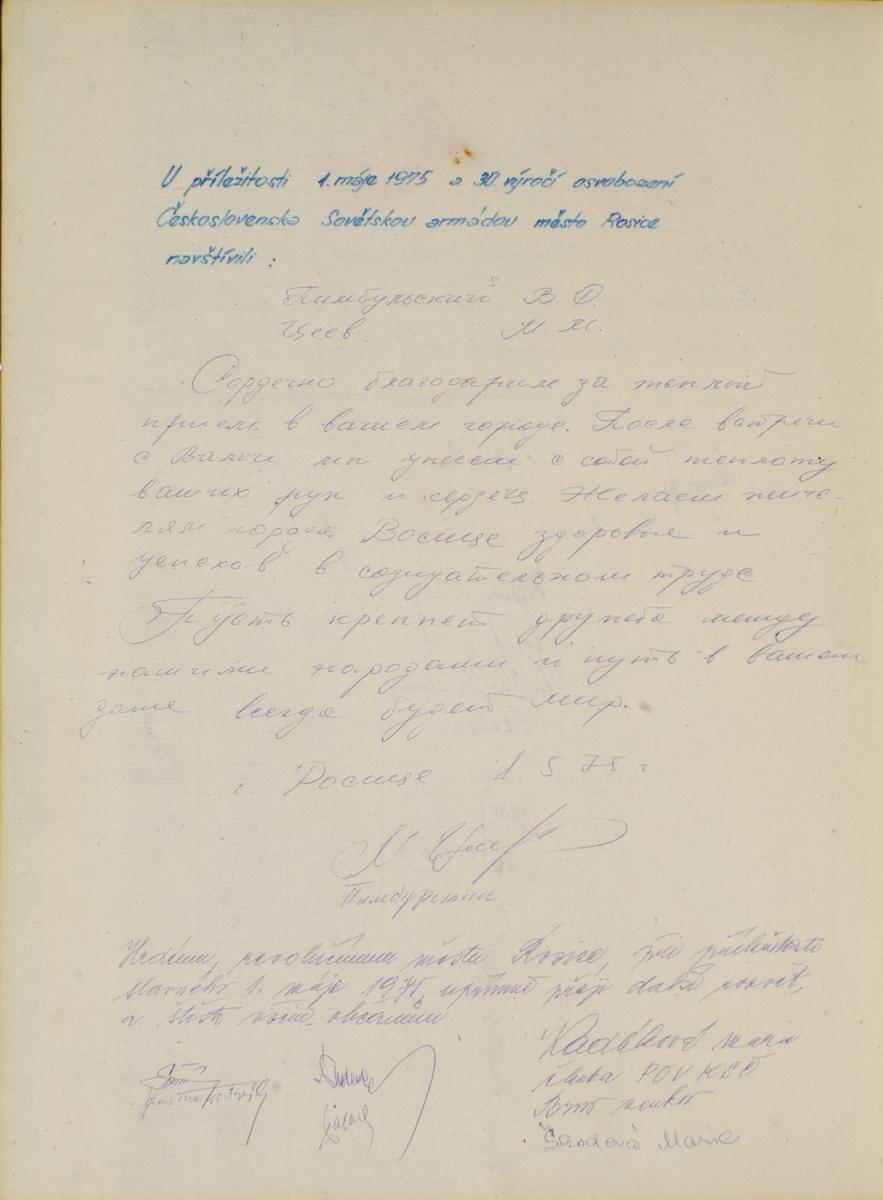 U příležitosti 1. máje 1975 a 30. výročí osvobození
Československa Sovětskou armádou město Rosice
navštívili :
Пимбульский В. Ф.
Цеев М. М.
Сердечно благодарим за теплый
прием в вашем городе. После встречи
с Вами мы унесем с собой теплоту
ваших рук и сердец. Желаем жите-
лям города Восице здоровья и
успехов в созидательном труде
Пусть крепнет дружба между
нашими народами и путь в вашем
доме всегда будет мир.
г. Росице 1. 5 75 г
Hrdému, revolučnímu městu Rosice, při příležitosti
slavného 1. máje 1975, upřímně přeji další rozvět,
a štěstí všem občanům.
Marie
členka POV KSČ
Brno venkov
Škodová Marie